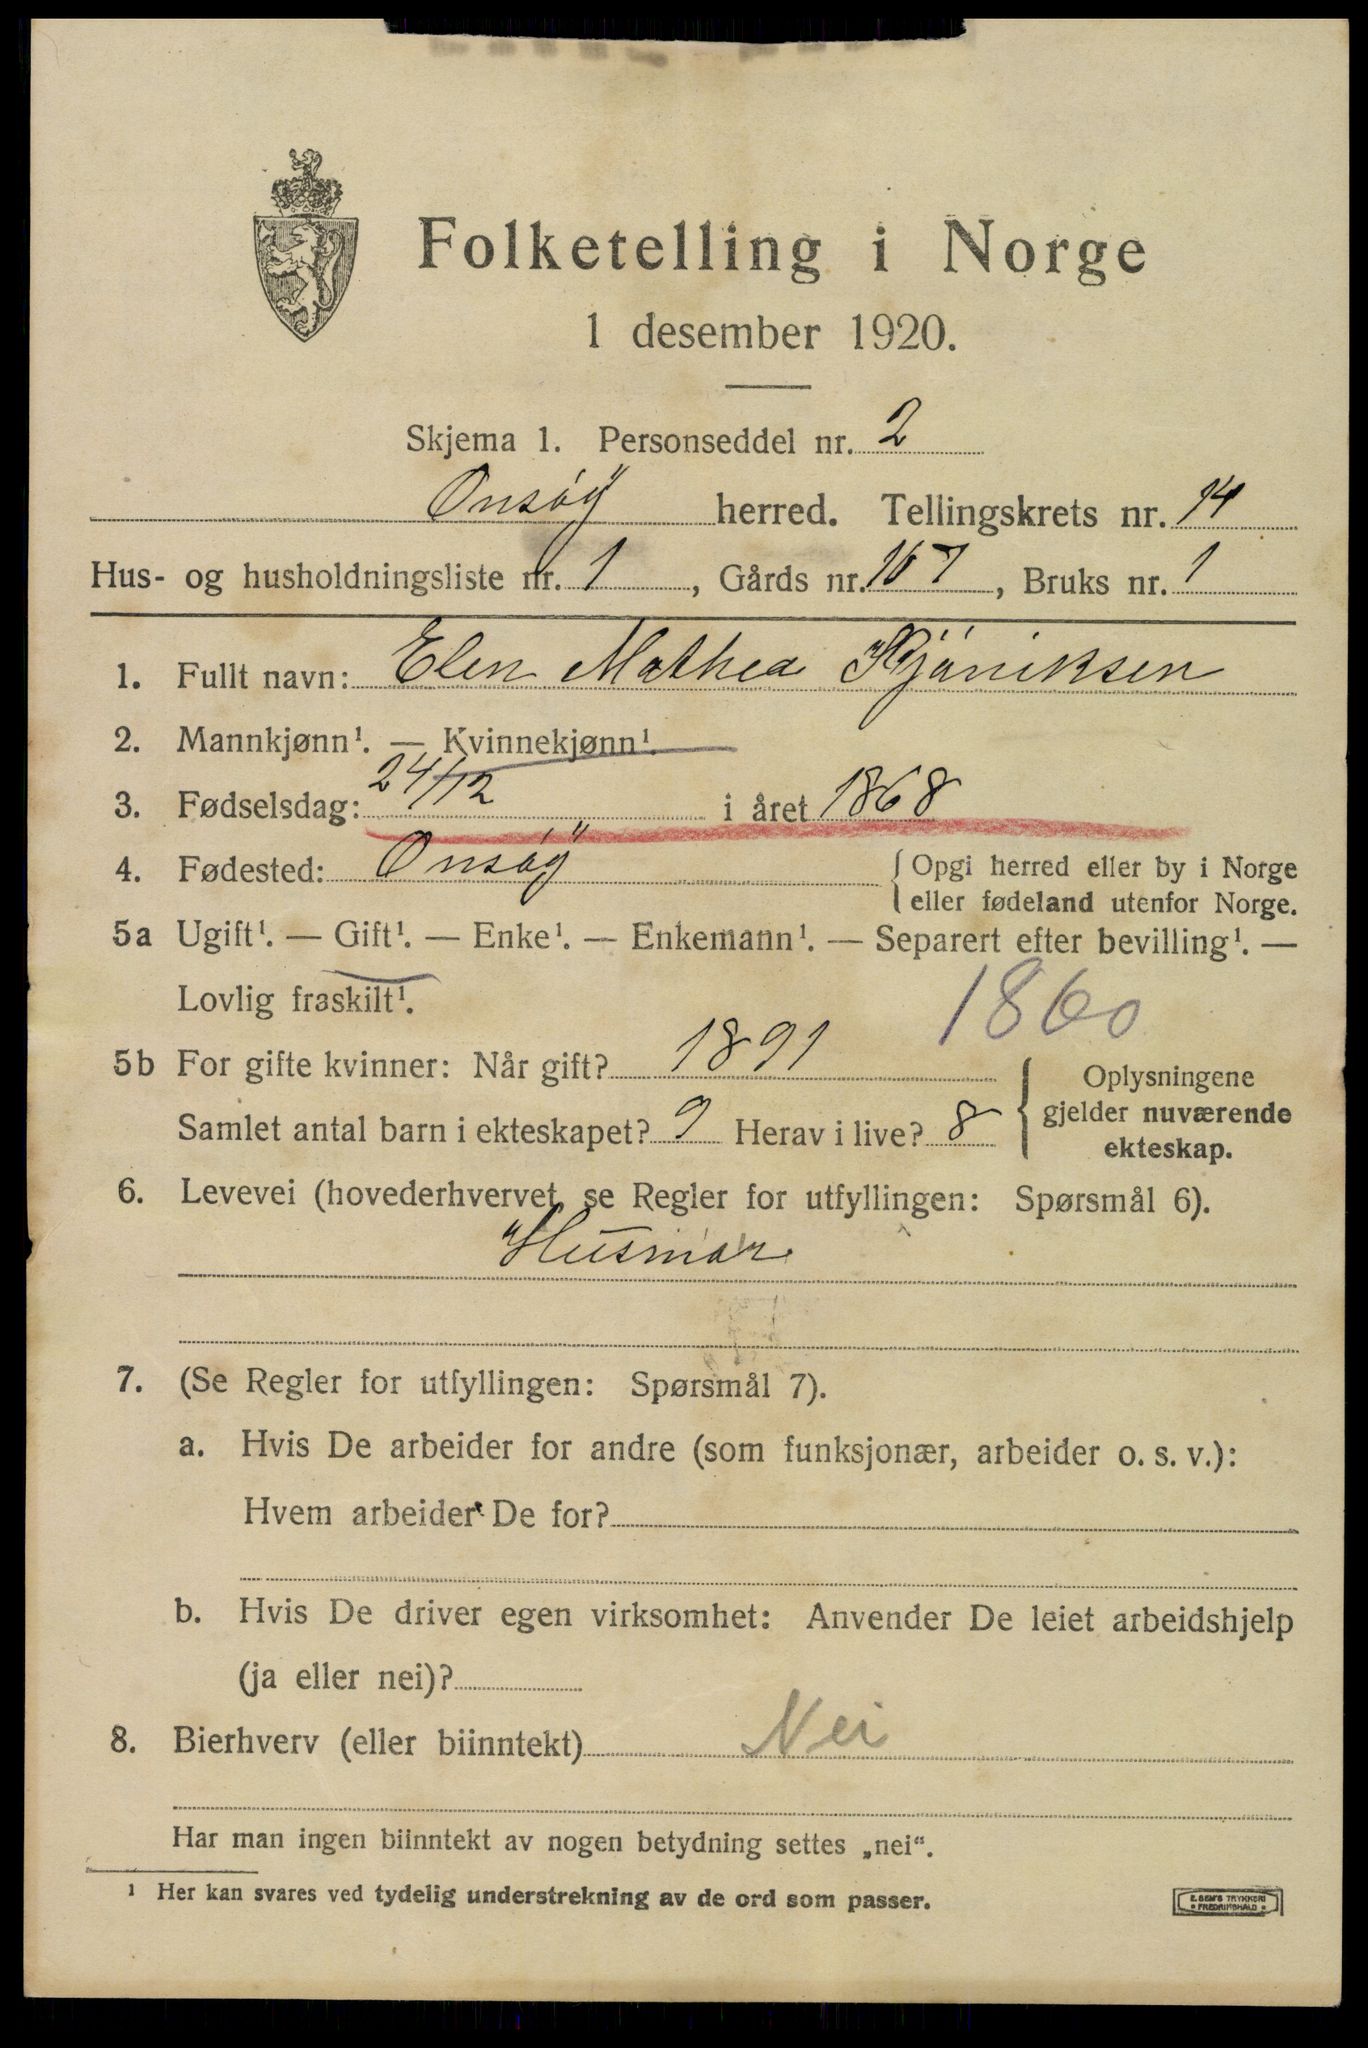 Folketelling i Norge
1 desember 1920.
Skjema 1. Personseddel nr. 2
Onsøy herred. Tellingskrets nr. 14
Hus- og husholdningsliste nr. 1, Gårds nr. 107, Bruks nr. 1
1. Fullt navn: Elen Mathea
2. Mannkjønn¹. — Kvinnekjønn¹.
3. Fødselsdag: 24/12 i året 1868
4. Fødested: Onsøy { Opgi herred eller by i Norge
eller fødeland utenfor Norge.
5a Ugift¹. — Gift¹. — Enke¹. — Enkemann¹. — Separert efter bevilling¹. —
Lovlig fraskilt¹. 1860
5b For gifte kvinner: Når gift? 1891
Samlet antal barn i ekteskapet? 9 Herav i live? 8
{ Oplysningene
gjelder nuværende
ekteskap.
6. Levevei (hovederhvervet, se Regler for utfyllingen: Spørsmål 6).
Husmor
7. (Se Regler for utfyllingen: Spørsmål 7).
a. Hvis De arbeider for andre (som funksjonær, arbeider o. s. v.):
Hvem arbeider De for?
b. Hvis De driver egen virksomhet: Anvender De leiet arbeidshjelp
(ja eller nei)?
8. Bierhverv (eller biinntekt) Nei
Har man ingen biinntekt av nogen betydning settes „nei“.
¹ Her kan svares ved tydelig understrekning av de ord som passer.
E. SEM'S TRYKKERI
FREDRIKSHALD